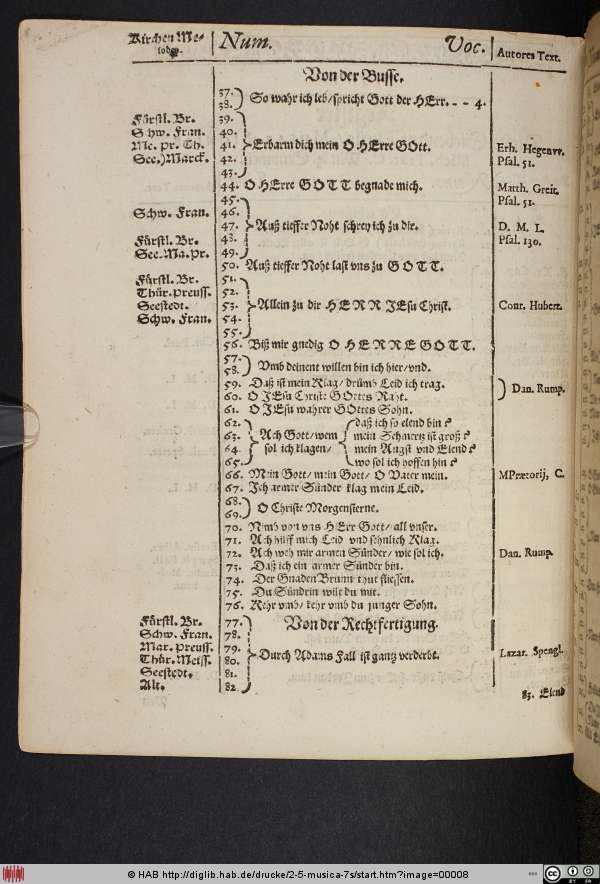 Kirchen Me-
lodey.
Num.
Voc.
Autores Text.
Von der Busse.
37.
38. So wahr ich leb/spricht Gott der HErr. - - 4.
Fürstl. Br. 39.
Schw. Fran. 40.
Me. pr. Th. 41. Erbarm dich mein O HErre GOtt. Erh. Hegenw.
See.) Marck. 42. Psal. 51.
43.
44. O HErre GOTT begnade mich. Matth. Greit.
45. Psal. 51.
Schw. Fran. 46.
47. Auß tieffer Noht schrey ich zu dir. D. M. L.
Fürstl. Br. 48. Psal. 130.
See. Ma. pr. 49.
50. Auß tieffer Noht last vns zu GOTT.
Fürstl. Br. 51.
Thür. Preuss. 52.
Seestedt. 53. Allein zu dir HERR JEsu Christ. Conr. Hubert.
Schw. Fran. 54.
55.
56. Biß mir gnedig O HERRE GOTT.
57.
58. Vmb deinent willen bin ich hier/vnd.
59. Daß ist mein Klag/drümb Leid ich trag.
60. O JEsu Christe GOttes Raht. Dan. Rump.
61. O JEsu wahrer GOttes Sohn.
62. daß ich so elend bin?
63. Ach Gott/wem mein Schmertz ist groß?
64. sol ich klagen/ mein Angst vnd Elend?
65. wo sol ich hoffen hin?
66. Mein Gott/mein Gott/O Vater mein. MPrætorij, C.
67. Ich armer Sünder klag mein Leid.
68.
69. O Christe Morgensterne.
70. Nimb von vns HErr Gott/all vnser.
71. Ach hilff mich Leid vnd sehnlich Klag.
72. Ach weh mir armen Sünder/wie sol ich. Dan. Rump.
73. Daß ich ein armer Sünder bin.
74. Der GnadenBrunn thut fliessen.
75. Du Sündrin wilt du mit.
76. Kehr vmb/kehr vmb du junger Sohn.
Fürstl. Br. 77. Von der Rechtfertigung.
Schw. Fran. 78.
Mar. Preuss. 79.
Thür. Meiss. 80. Durch Adams Fall ist gantz verderbt. Lazar. Spengl.
Seestedt. 81.
Alt. 82.
83. Elend
© HAB http://diglib.hab.de/drucke/2-5-musica-7s/start.htm?image=00008